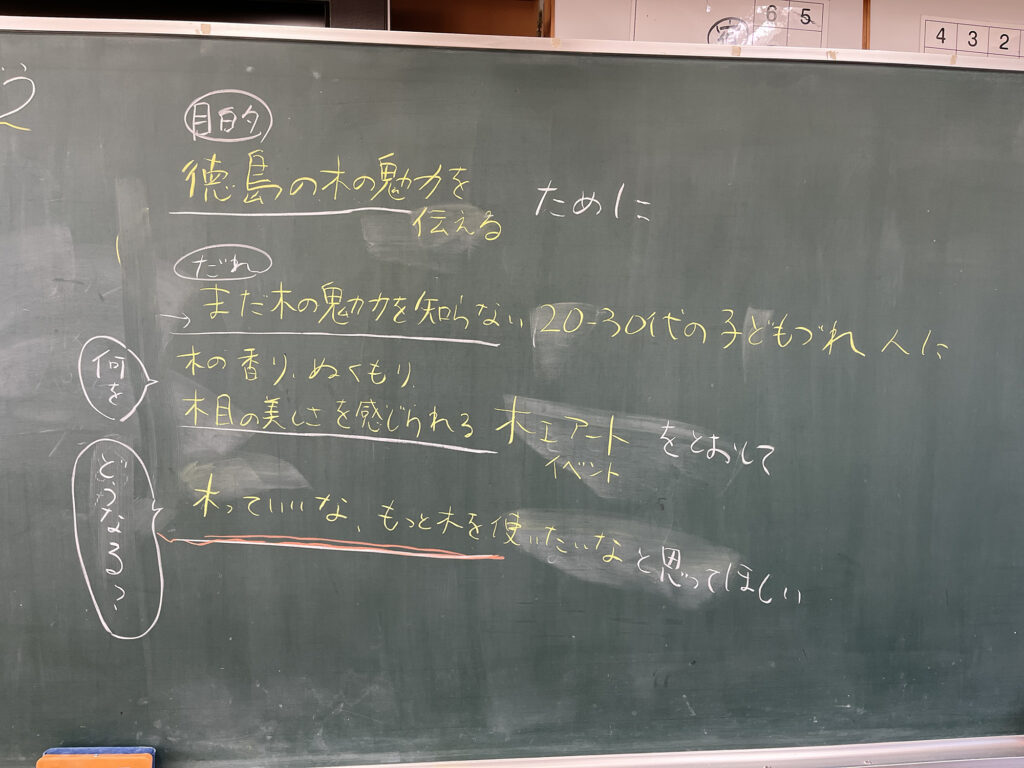 6 5
4 3 2
目的
徳島の木の魅力を
伝える
ために
だれ
→ まだ木の魅力を知らない 20-30代の子どもづれ 人に
何を
木の香り、ぬくもり、
木目の美しさを感じられる 木工アート
イベント
をとおして
どうなる?
木っていいな、もっと木を使いたいな と思ってほしい